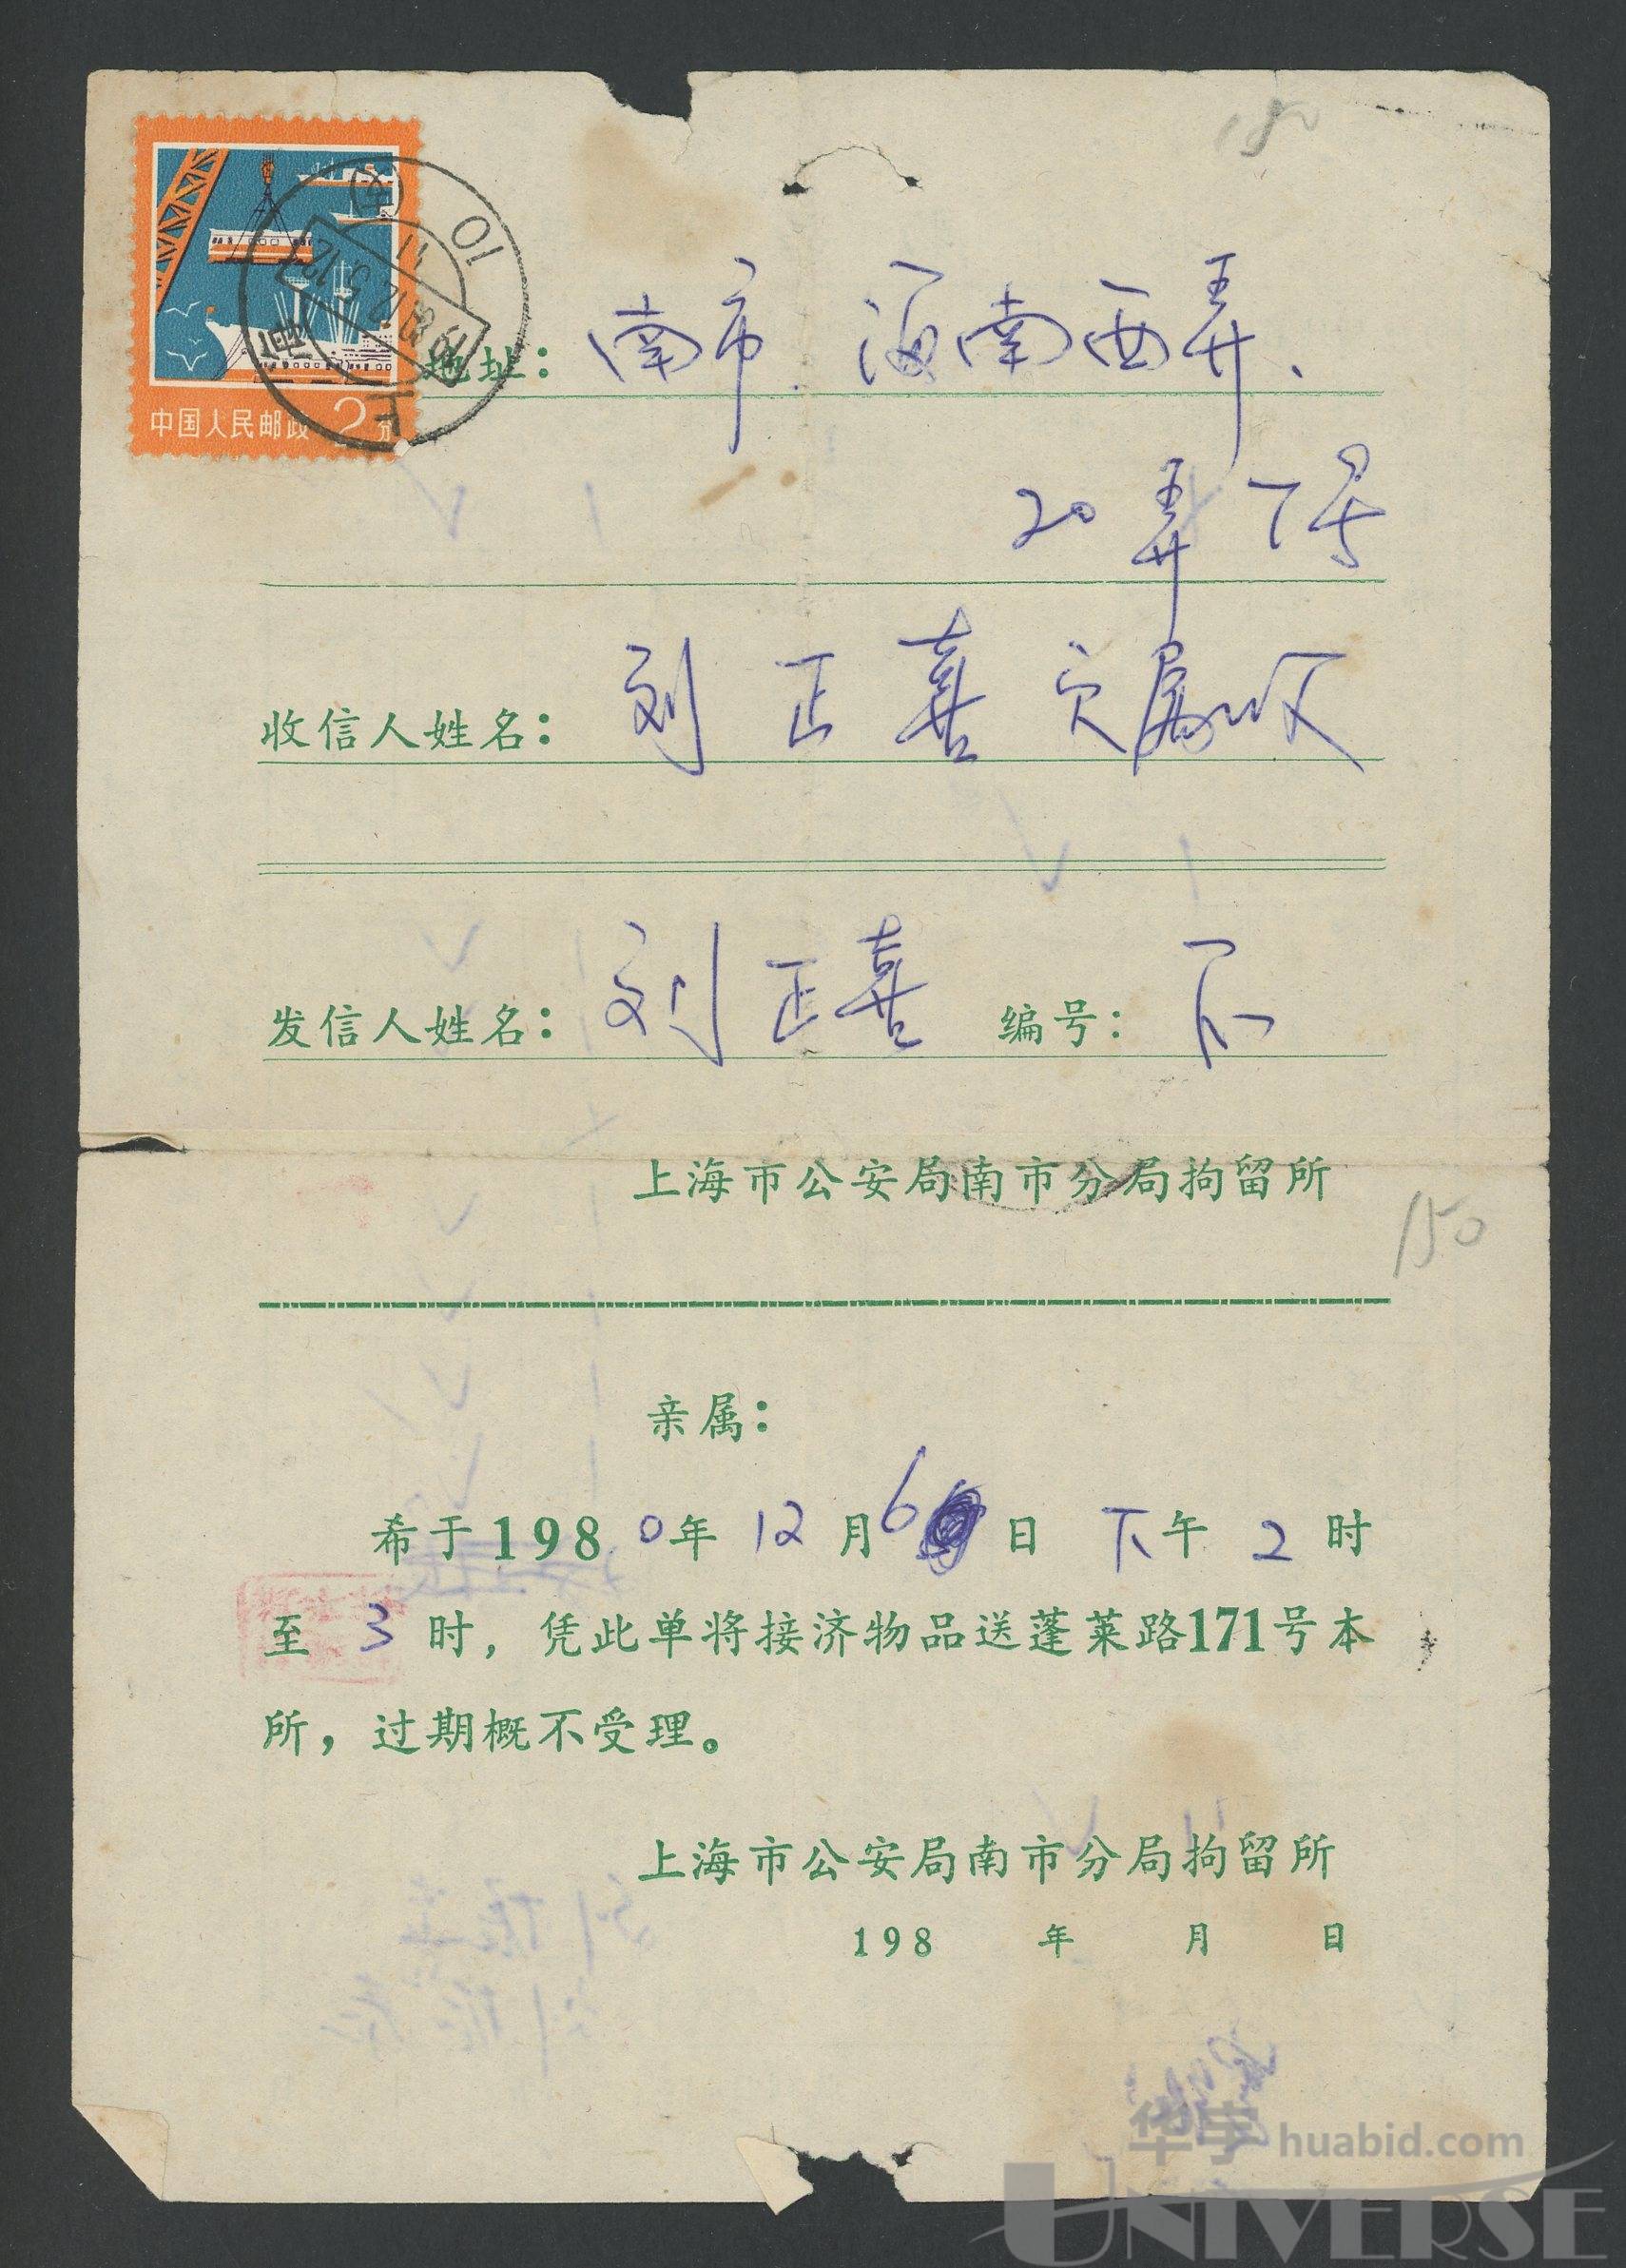 180
中国人民邮政 2分
上海
地址：南市．海南西弄、
20弄7号
收信人姓名：刘正喜家属收
发信人姓名：刘正喜 编号：
上海市公安局南市分局拘留所
150
亲属：
希于1980年12月6日下午2时
至3时，凭此单将接济物品送蓬莱路171号本
所，过期概不受理。
上海市公安局南市分局拘留所
198 年 月 日
华宇 huabid.com
UNIVERSE